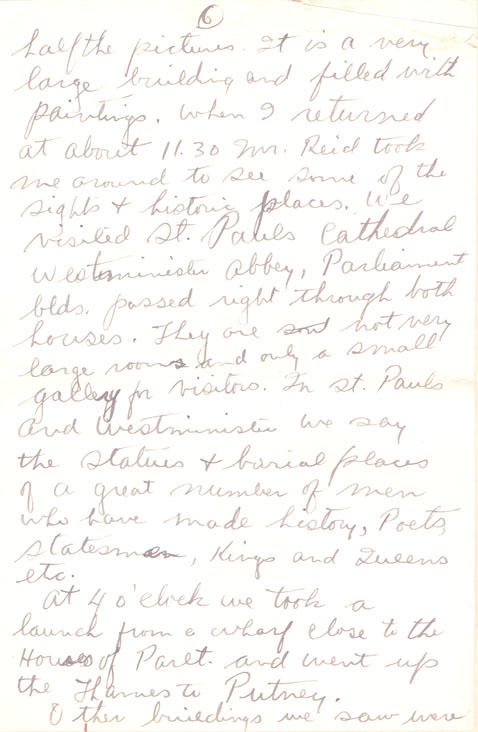 6
half the pictures. It is a very
large building and filled with
paintings. When I returned
at about 11.30 Mr. Reid took
me around to see some of the
sights + historic places. We
visited St. Pauls Cathedral
Westminister Abbey, Parliament
blds. passed right through both
houses. They are not very
large rooms and only a small
gallery for visitors. In St. Pauls
and Westminister we say
the statues + burial places
of a great number of men
who have made history, Poets,
Statesmen, Kings and Queens
etc.
At 4 o'clock we took a
launch from a wharf close to the
Houses of Parlt. and went up
the Thames to Putney.
Other buildings we saw were